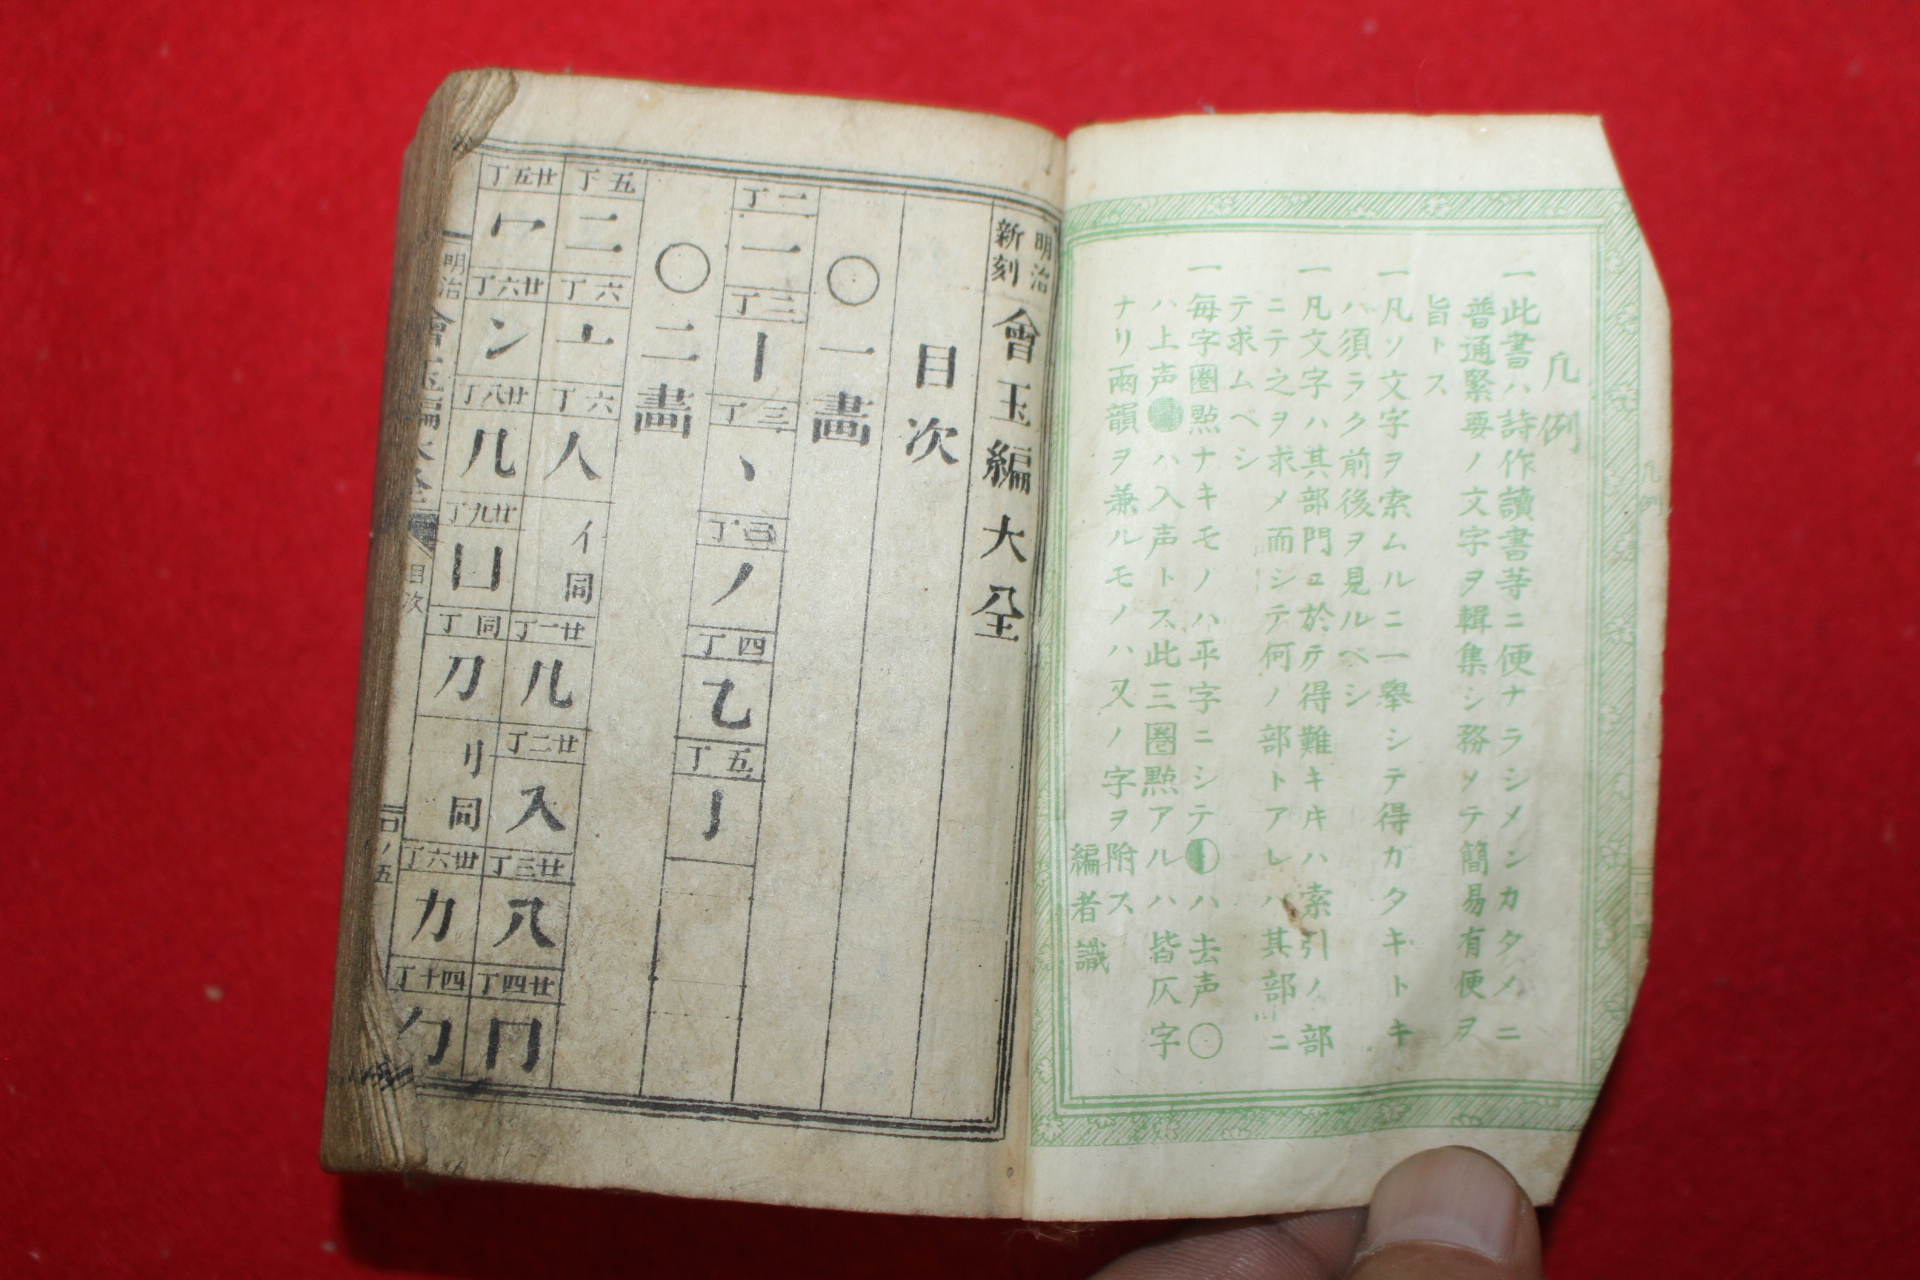 凡例
一此書ハ詩作讀書等ニ便ナラシメンカタメニ
普通緊要ノ文字ヲ輯集シ務メテ簡易有便ヲ
旨トス
一凡ソ文字ヲ索ムルニ一擧シテ得ガタキトキ
ハ須ラク前後ヲ見ルベシ
一凡文字ハ其部門ニ於テ得難キ𪜈ハ索引ノ部
ニテ之ヲ求メ而シテ何ノ部トアレハ其部ニ
テ求ムベシ
一每字圏㸃ナキモノハ平字ニシテ◐ハ去声○
ハ上声●ハ入声トス此三圏㸃アルハ皆仄字
ナリ兩韻ヲ兼ルモノハ又ノ字ヲ附ス
編者識
凡例
明治新刻會玉編大全
目次
○一畫
二丁 一 三丁 丨 三丁 丶 三丁 ノ 四丁 乙 五丁 亅
○二畫
五丁 二 六丁 亠 六丁 人 亻同 廿一丁 儿 廿二丁 入 廿三丁 八 廿四丁 冂
廿五丁 冖 廿六丁 冫 廿八丁 几 廿九丁 凵 同丁 刀 刂同 卅六丁 力 四十丁 勹
明治會玉編大全 目次 口ノ五